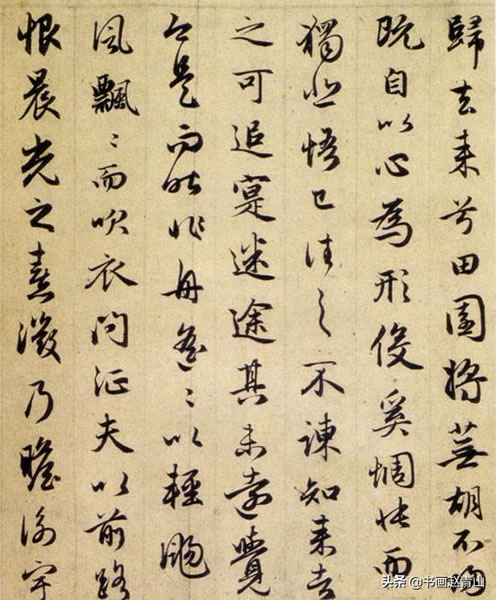 歸去来兮田園將蕪胡不歸
既自以心為形役奚惆悵而
獨悲悟已往之不諫知来者
之可追寔迷途其未遠覺
今是而昨非舟遥〻以輕颺
風飄〻而吹衣問征夫以前路
恨晨光之熹微乃瞻衡宇
头条 @书画赵青山